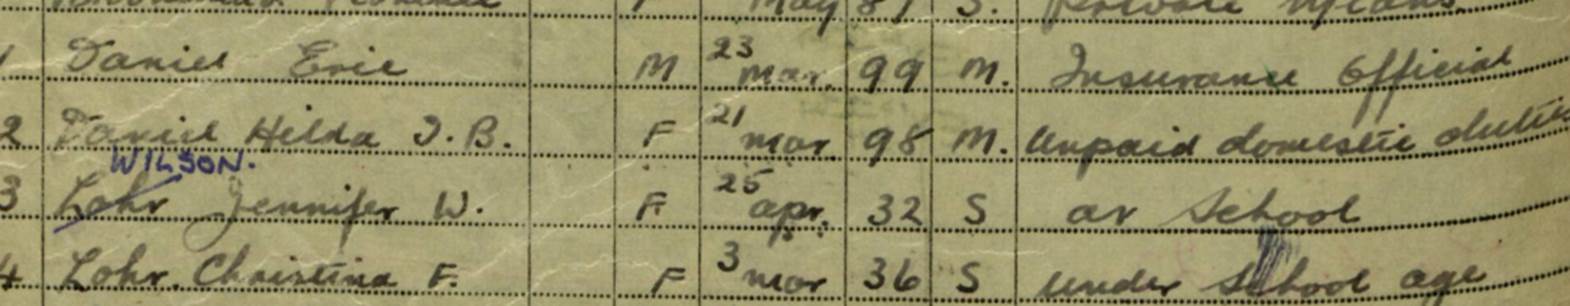 May 87 S. Private Means.
1 Daniel Eric M 23 Mar. 99 M. Insurance Official
2 Daniel Hilda I.B. F 21 mar. 98 M. Unpaid domestic duties
WILSON.
3 Lohr Jennifer W. F. 25 apr. 32 S at School
4 Lohr. Christina F. F 3 mar 36 S under School age